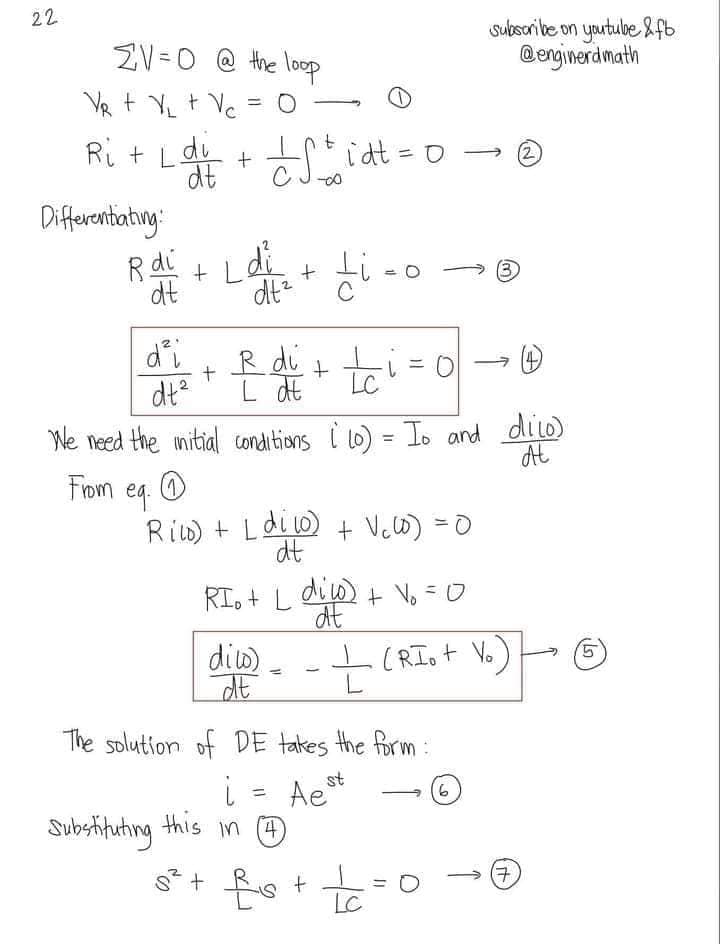 22
subscribe on youtube & fb
@enginerdmath
ΣV=0 @ the loop
V_R + V_L + V_C = 0 → ①
Ri + L di/dt + 1/C ∫_{-∞}^{t} i dt = 0 → ②
Differentiating:
R di/dt + L d²i/dt² + 1/C i = 0 → ③
d²i/dt² + R/L di/dt + 1/LC i = 0 → ④
We need the initial conditions i(0) = I₀ and di(0)/dt
From eq. ①
Ri(0) + L di(0)/dt + V_C(0) = 0
RI₀ + L di(0)/dt + V₀ = 0
di(0)/dt = - 1/L (RI₀ + V₀) → ⑤
The solution of DE takes the form :
i = Ae^{st} → ⑥
Substituting this in ④
s² + R/L s + 1/LC = 0 → ⑦